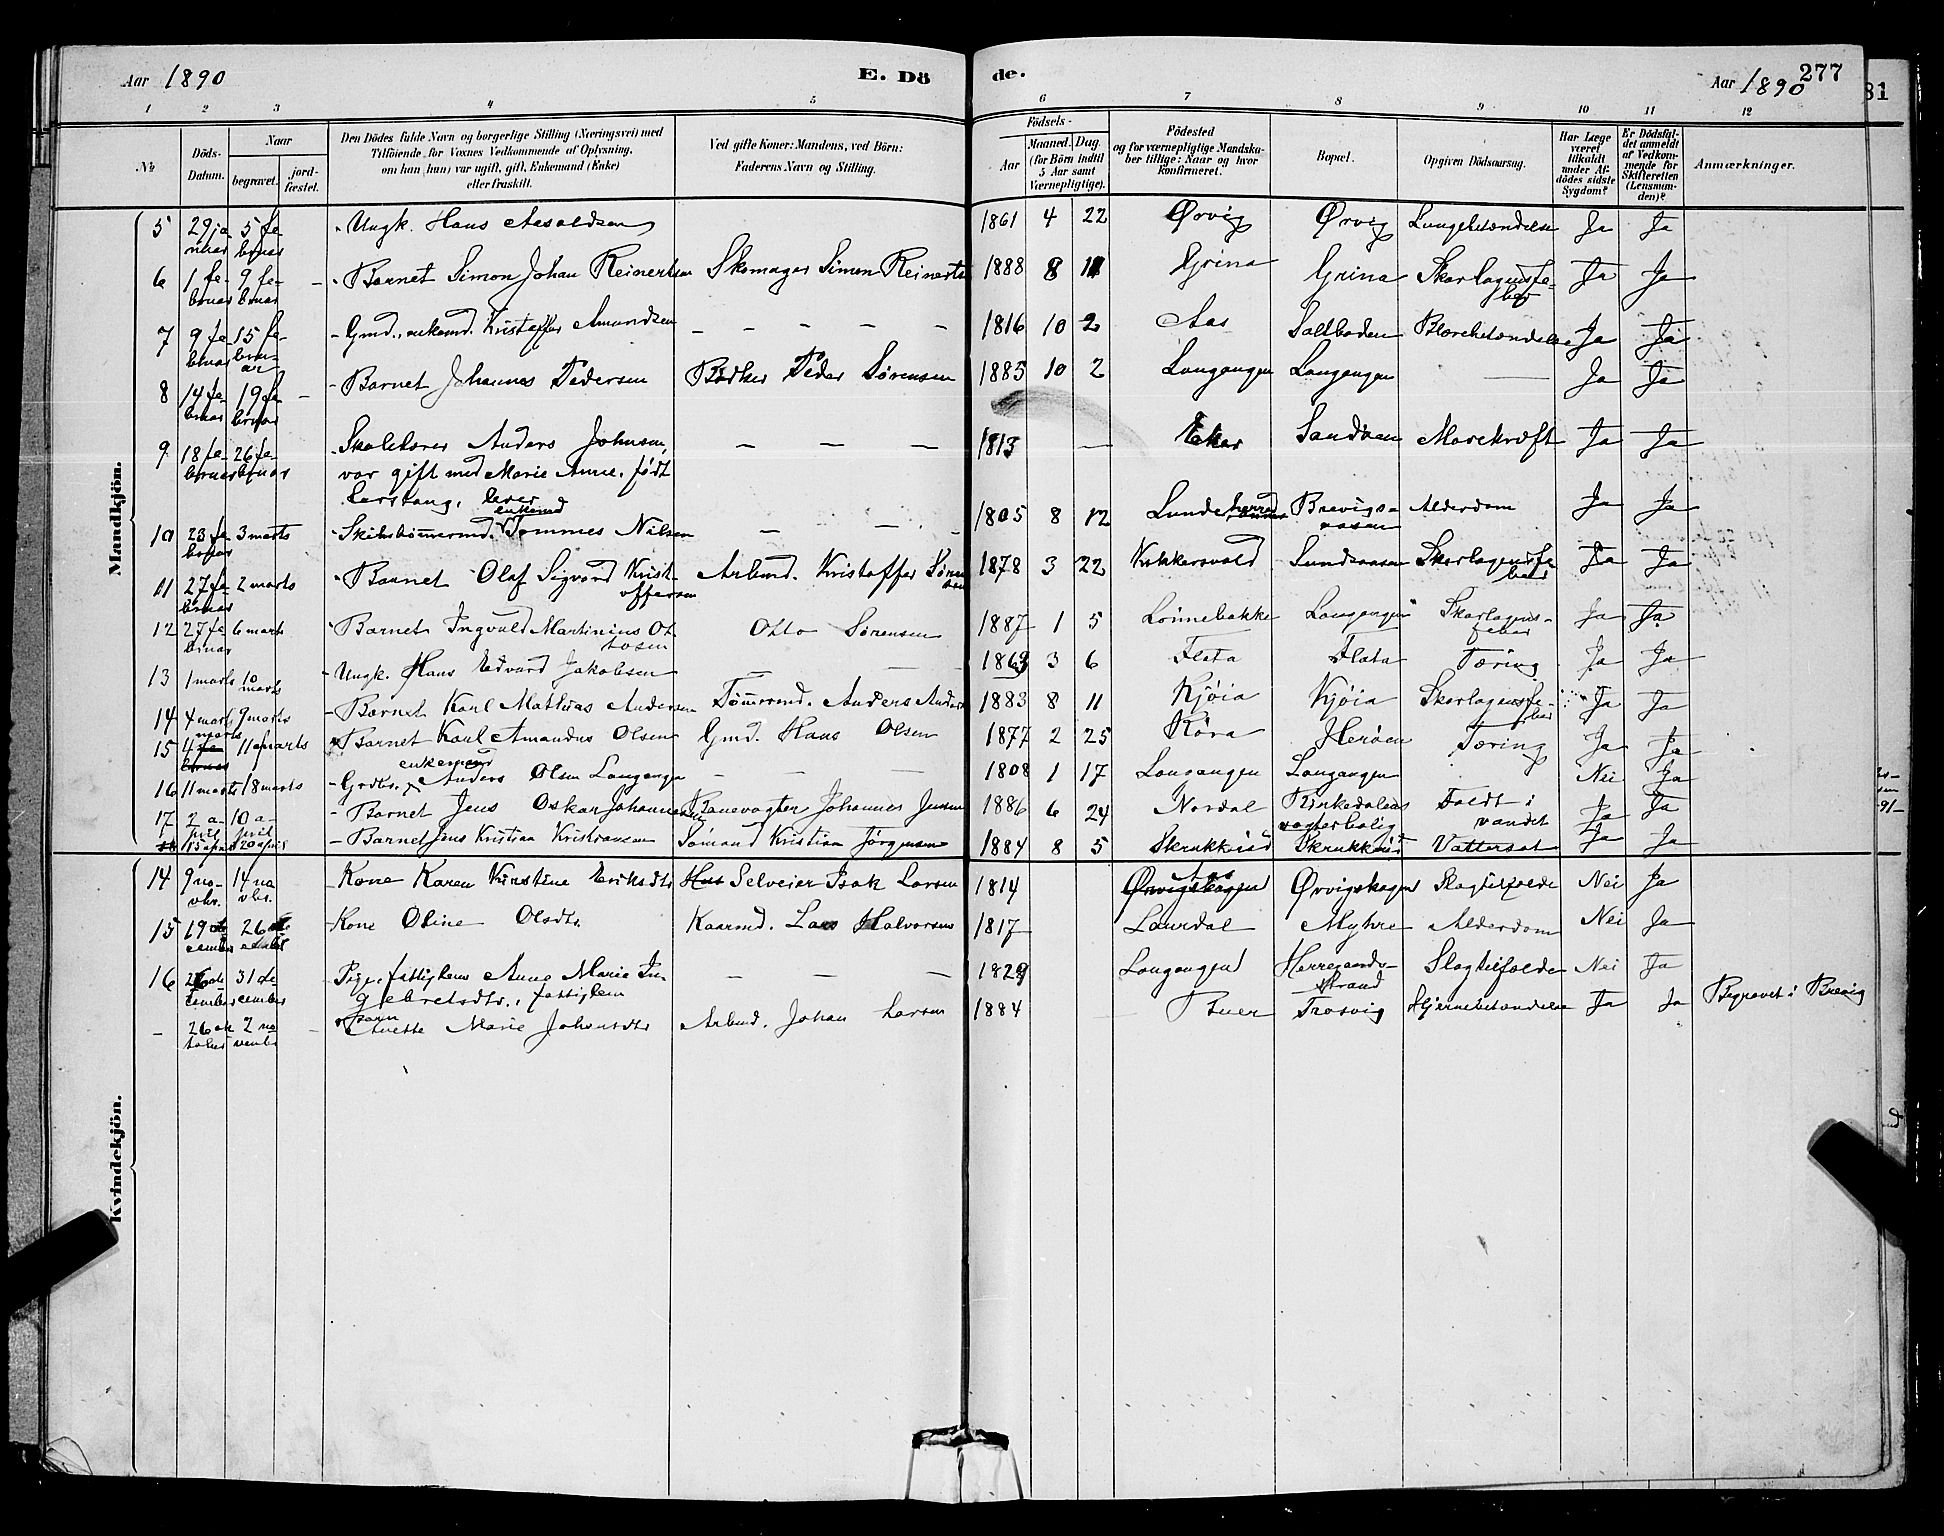 Aar 1890 E. Dö
de. Aar 1890 277
81
1 2 3 4 5 6 7 8 9 10 11 12
№ Döds-Datum. Naar begravet. jord-fæstet. Den Dödes fulde Navn og borgerlige Stilling (Næringsvei) med Tilföiende for Voxnes Vedkommende af Oplysning, om han (hun) var ugift, gift, Enkemand (Enke) eller fraskilt. Ved gifte Koner: Mandens, ved Börn: Faderens Navn og Stilling.
Födsels- Aar Maaned. Dag. (for Börn indtil 5 Aar samt Værnepligtige). Födested og for værnepligtige Mandskaber tillige: Naar og hvor konfirmeret. Bopæl. Opgiven Dödsaarsag. Har Læge været tilkaldt under Afdödes sidste Sygdom? Er Dödsfaldet anmeldt af Vedkommende for Skifteretten (Lensmanden)? Anmærkninger.
Mandkjön.
5 29 januar 5 februar Ungk. Hans 1861 4 22 Ørvig Ørvig Lungebetændelse Ja Ja
6 1 februar 9 februar – Barnet Simon Johan Reinertsen Skomager Simon Reinertsen 1888 8 Grina Grina Skarlagensfeber Ja Ja
7 9 februar 15 februar Gmd., enkemd. Kristoffer Amundsen – – – – – 1816 10 2 Aas Saltboden Blærebetændelse Ja Ja
8 14 februar 19 februar – Barnet Johannes Pedersen Bødker Peder Sørensen 1885 10 2 Langangen Langangen — Ja Ja
9 18 februar 26 februar Skolelærer Anders Johnsen, – – – 1813 — Eker Sandøen Marekræft Ja Ja
var gift med Marie Anne, født
Larstang, lever
10 23 februar 3 marts Skibstømmermd. enkemd Tommes Nilsen – – – 1805 8 12 Lundeherred Brevigsaasen Alderdom Ja Ja
11 27 februar 2 marts Barnet Olaf Sigvard Kristoffersen Arbmd. Kristoffer 1878 3 22 Kokkersvold Sundsaasen Skarlagensfeber Ja Ja
12 27 februar 6 marts Barnet Ingvald Martinius Ottosen Otto Sørensen 1887 1 5 Lønnebakke Langangen Skarlagensfeber Ja Ja
13 1 marts 10 marts Ungk. Hans Edvard Jakobsen — — 1869 3 6 Flata Flata Tæring Ja Ja
14 4 marts 9 marts Barnet Karl Mathias Andersen Tømmermd. Anders 1883 8 11 Kjøia Kjøia Skarlagensfeber Ja Ja
15 4 marts 11 marts Barnet Karl Amandus Olsen Gmd. Hans Olsen 1877 2 25 Røra Herøen Tæring Ja Ja
16 11 marts 18 marts Grdbr. enkemand Anders Olsen Langangen – — — 1808 1 17 Langangen Langangen Nei Ja
17 2 april 10 april Barnet Jens Oskar Johannesen Banevogter Johannes Jensen 1886 6 24 Nordal Birkedalens vogterbolig Faldt i vandet Ja Ja
15 april 20 april Barnet Jens Kristian Kristiansen Sømand Kristian Jørgensen 1884 8 5 Skrukkerød Skrukkerød Vattersot Ja Ja
Kvindekjön.
14 9 novbr. 14 novbr. Kone Karen Kirstine Eriksdtr. Selveier Isak Larsen 1814 Aas Ørvigskogen Slagtilfælde Nei Ja
15 19 december 26 december Kone Oline Olsdtr. Kaarmd. Lars Halvorsen 1817 Laurdal Myhre Alderdom Nei Ja
16 26 december 31 december Pige, fattiglem Anne Maria Ingebretsdtr., fattiglem – – – 1829 Langangen Herregaardsstrand Slagtilfælde Nei Ja
– 26 oktober 2 november – Barn Anette Marie Johansdtr. Arbmd. Johan Larsen 1884 Buer Trosvig Hjernebetændelse Ja Ja Begravet i Brevig